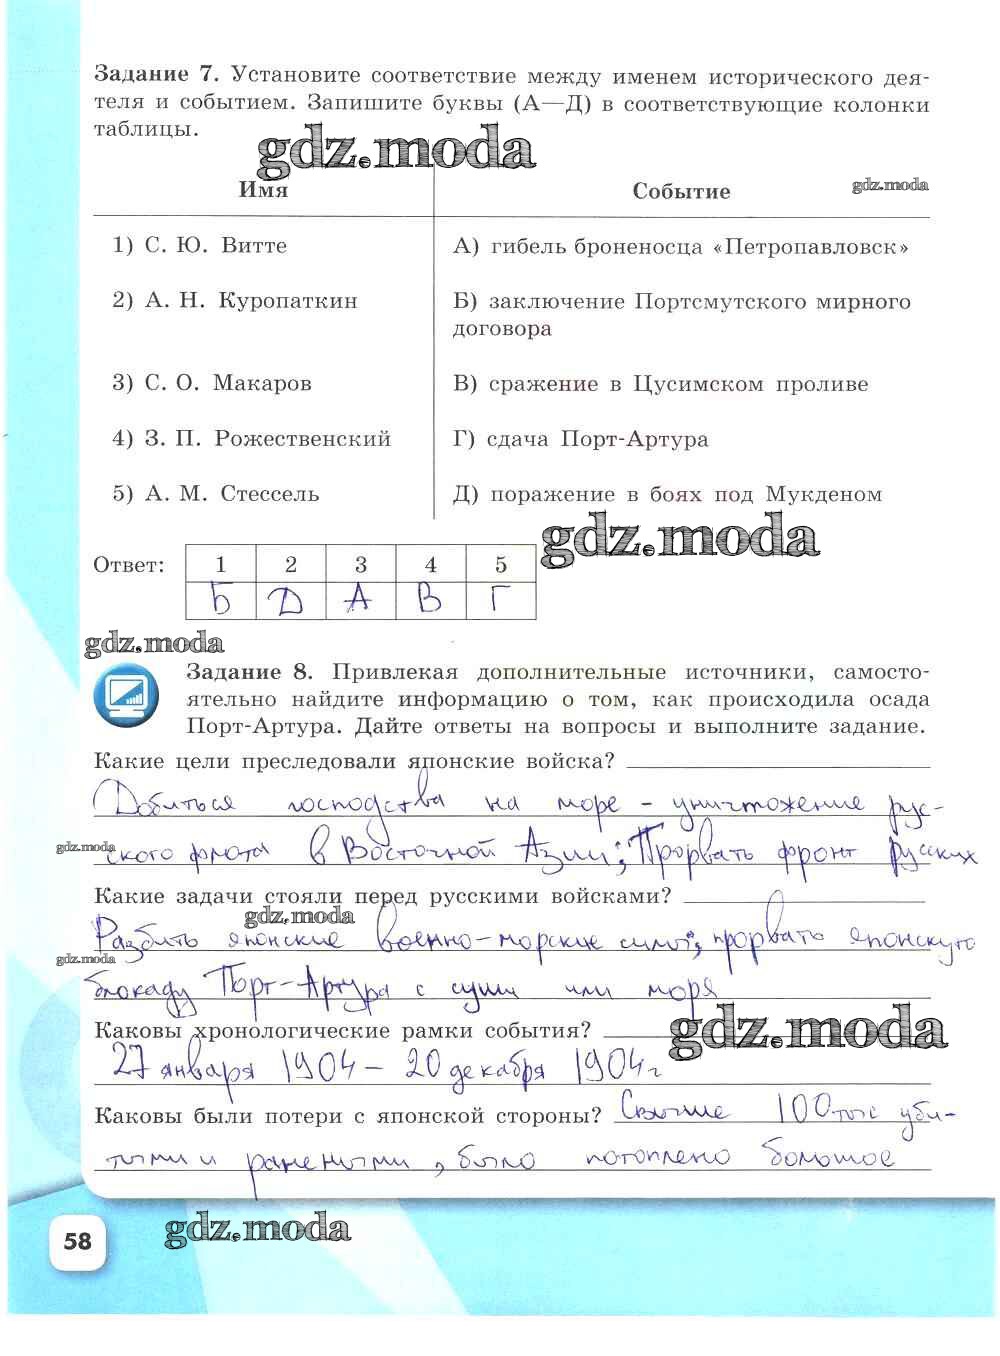 Задание 7. Установите соответствие между именем исторического дея-
теля и событием. Запишите буквы (А—Д) в соответствующие колонки
таблицы.
gdz.moda
Имя
Событие
gdz.moda
1) С. Ю. Витте
А) гибель броненосца «Петропавловск»
2) А. Н. Куропаткин
Б) заключение Портсмутского мирного
договора
3) С. О. Макаров
В) сражение в Цусимском проливе
4) З. П. Рожественский
Г) сдача Порт-Артура
5) А. М. Стессель
Д) поражение в боях под Мукденом
gdz.moda
Ответ:
1 2 3 4 5
Б Д А В Г
gdz.moda
Задание 8. Привлекая дополнительные источники, самосто-
ятельно найдите информацию о том, как происходила осада
Порт-Артура. Дайте ответы на вопросы и выполните задание.
Какие цели преследовали японские войска?
Добиться господства на море - уничтожение рус-
gdz.moda
ского флота в Восточной Азии; Прорвать фронт русских
Какие задачи стояли перед русскими войсками?
gdz.moda
Разбить японские военно-морские силы; прорвать японскую
gdz.moda
блокаду Порт-Артура с суши или моря
Каковы хронологические рамки события?
gdz.moda
27 января 1904 - 20 декабря 1904 г
Каковы были потери с японской стороны? Свыше 100 тыс уби-
тыми и ранеными, было потоплено большое
58
gdz.moda